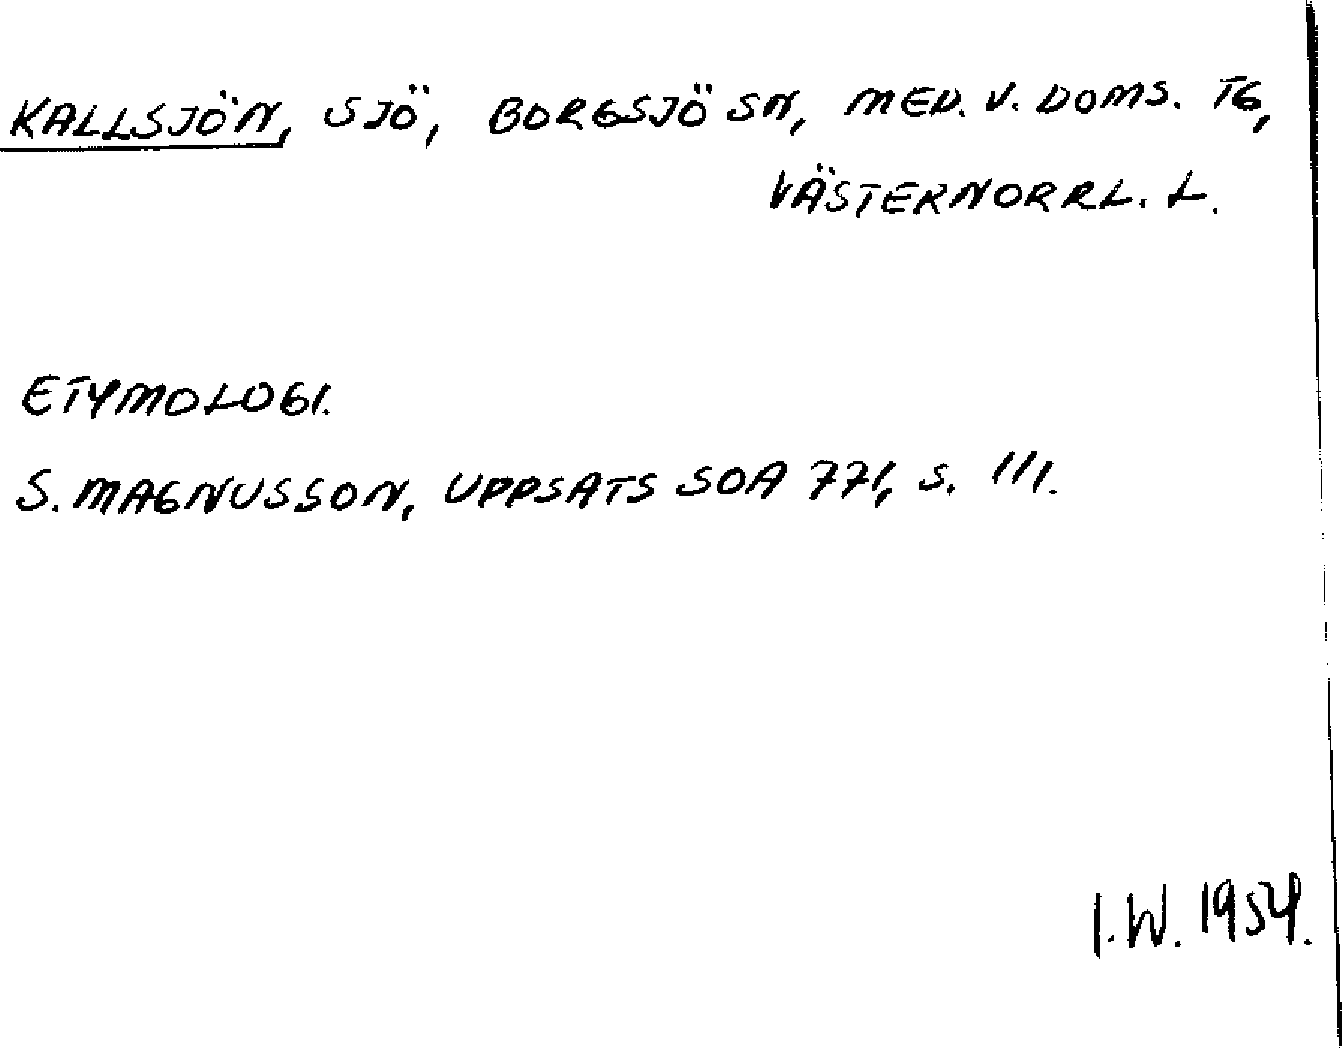 KALLSJÖN, SJÖ, BORGSJÖ SN, MED. V. DOMS. TG,
VÄSTERNORRL. L.
ETYMOLOGI.
S. MAGNUSSON, UPPSATS SOA 771, S. 111.
I.W. 1954.